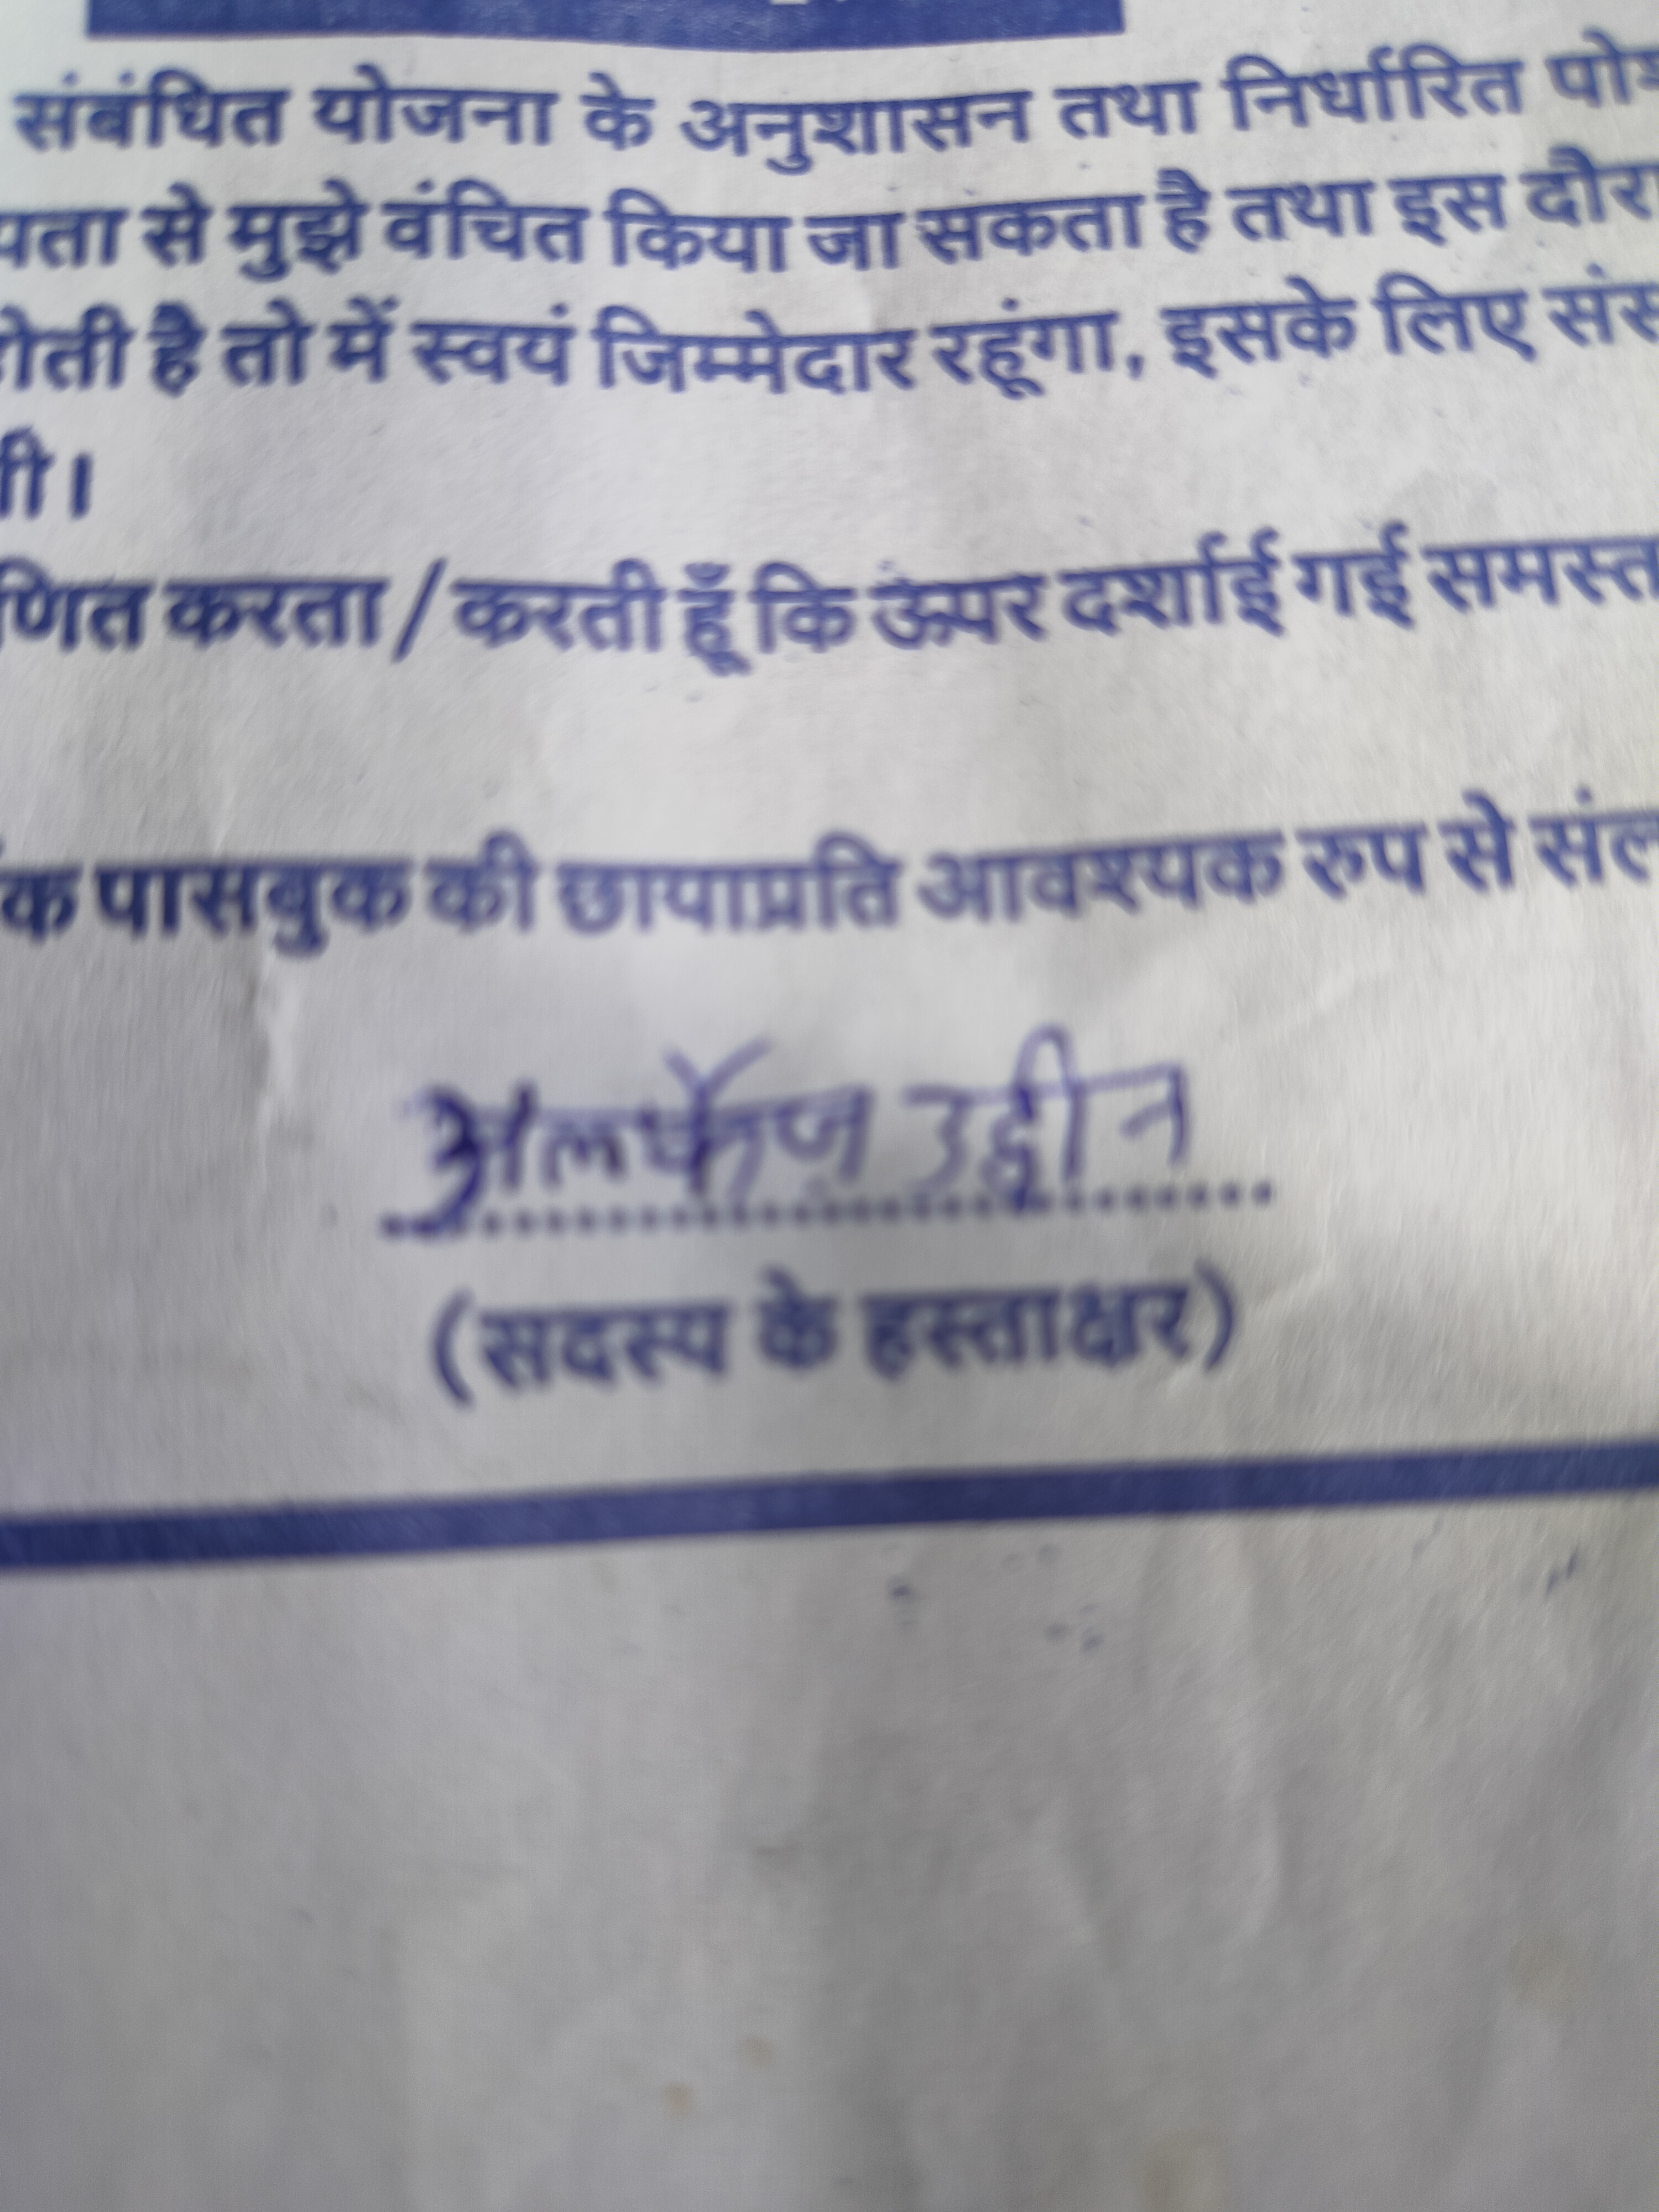 संबंधित योजना के अनुशासन तथा निर्धारित
से मुझे वंचित किया जा सकता है तथा इस
है तो में स्वयं जिम्मेदार रहूंगा, इसके लिए
करता / करती हूँ कि ऊपर दर्शाई गई समस्त
पासबुक की छायाप्रति आवश्यक रुप से
अलफेज उद्दीन
(सदस्य के हस्ताक्षर)